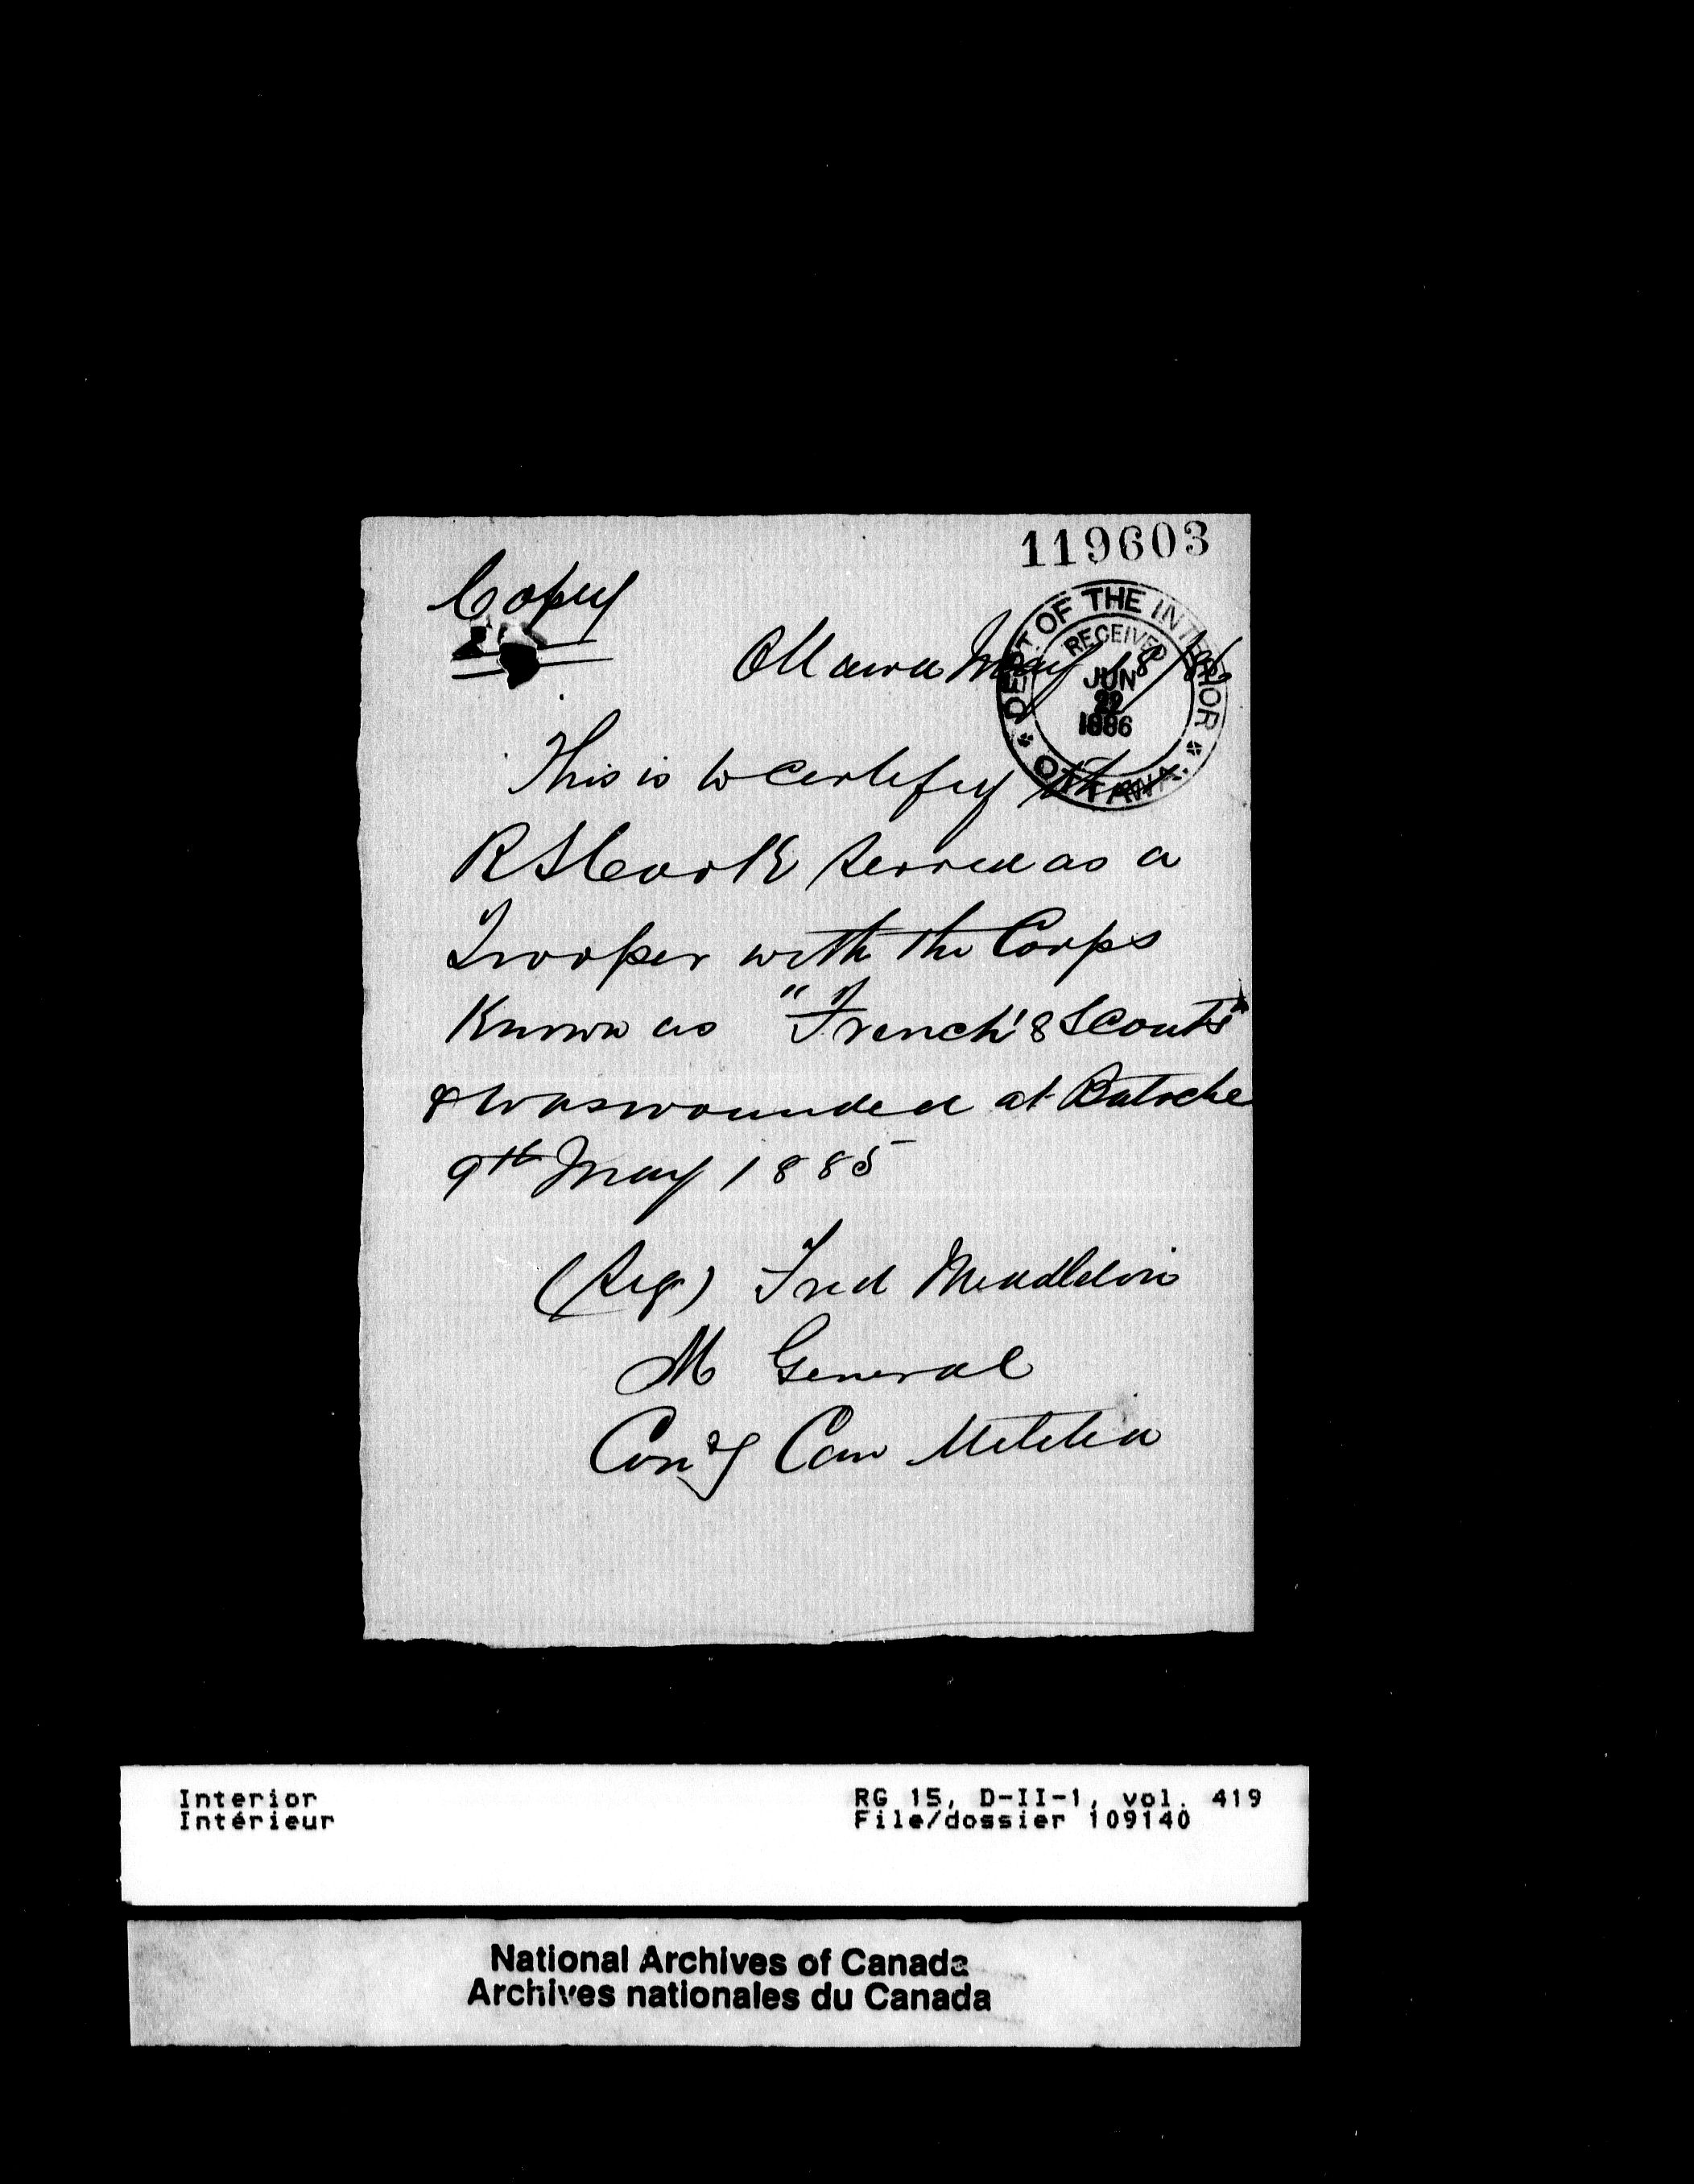 119603
Copy
DEPT. OF THE INTERIOR
RECEIVED
JUN
22
1886
OTTAWA.
Ottawa May 18/86
This is to certify that
R S Cook served as a
Trooper with the Corps
Known as "French's Scouts"
& was wounded at Batoche
9th May 1885
(Sig) Fred Middleton
M General
Com'g Can Militia
Interior
Intérieur
RG 15, D-II-1, vol. 419
File/dossier 109140
National Archives of Canada
Archives nationales du Canada